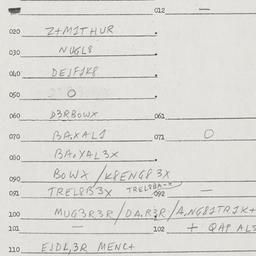 012 —
020 Z+M1THUR
030 NUGL8
040 DEJF1K8
050 O
060 D3RBOWX 061
070 BA,XAL1 071 O
080 BA,YAL3X
090 BOWX/K8ENG83X
091 TREL8B3X TREL8BA-X 092 —
100 MUG3R3R/DA,R3R/A,NG81TA1K+
101 — 102 + QAP ALS
110 EJDL,3R MENC+